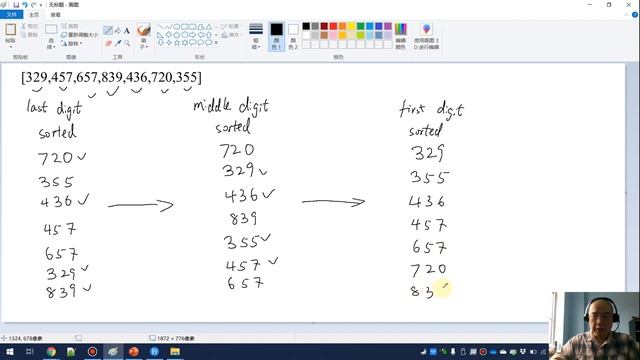 无标题 - 画图
文件 主页 查看
粘贴
选择
重新调整大小
刷子
形状
粗细
颜色 1
颜色 2
编辑颜色
使用画图 3D 进行编辑
剪贴板 图像 工具 形状 颜色
[329,457,657,839,436,720,355]
last digit sorted
720
355
436
457
657
329
839
middle digit sorted
720
329
436
839
355
457
657
first digit sorted
329
355
436
457
657
720
83
1324, 678像素
1872 × 776像素
100%